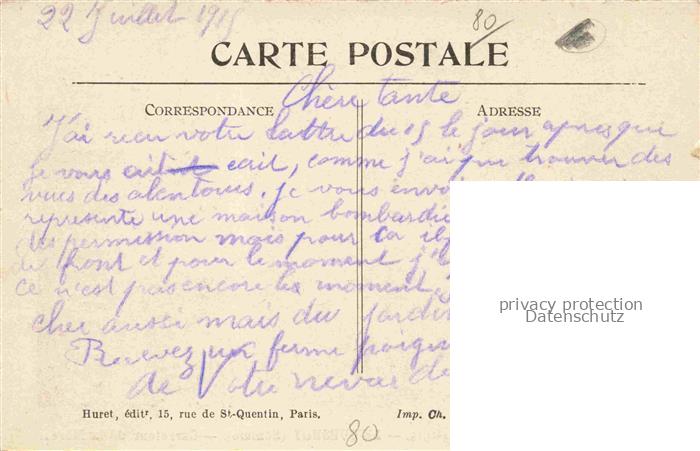 22 Juillet 1915
80
CARTE POSTALE
CORRESPONDANCE
ADRESSE
Chère tante
J'ai recu votre lettre du 15 le jour apres que
je vous ecrit, comme j'ai pu trouver des
vues des alentours. je vous envoi
represente une maison bombardie
des permission mais pour ca il
de front et pour le moment j'
ce n'est pas encore le moment
cher aussi mais du jardin
Recevez une ferme poigne
de Votre neveu de
privacy protection
Datenschutz
Huret, éditr, 15, rue de St-Quentin, Paris.
Imp. Ch.
80